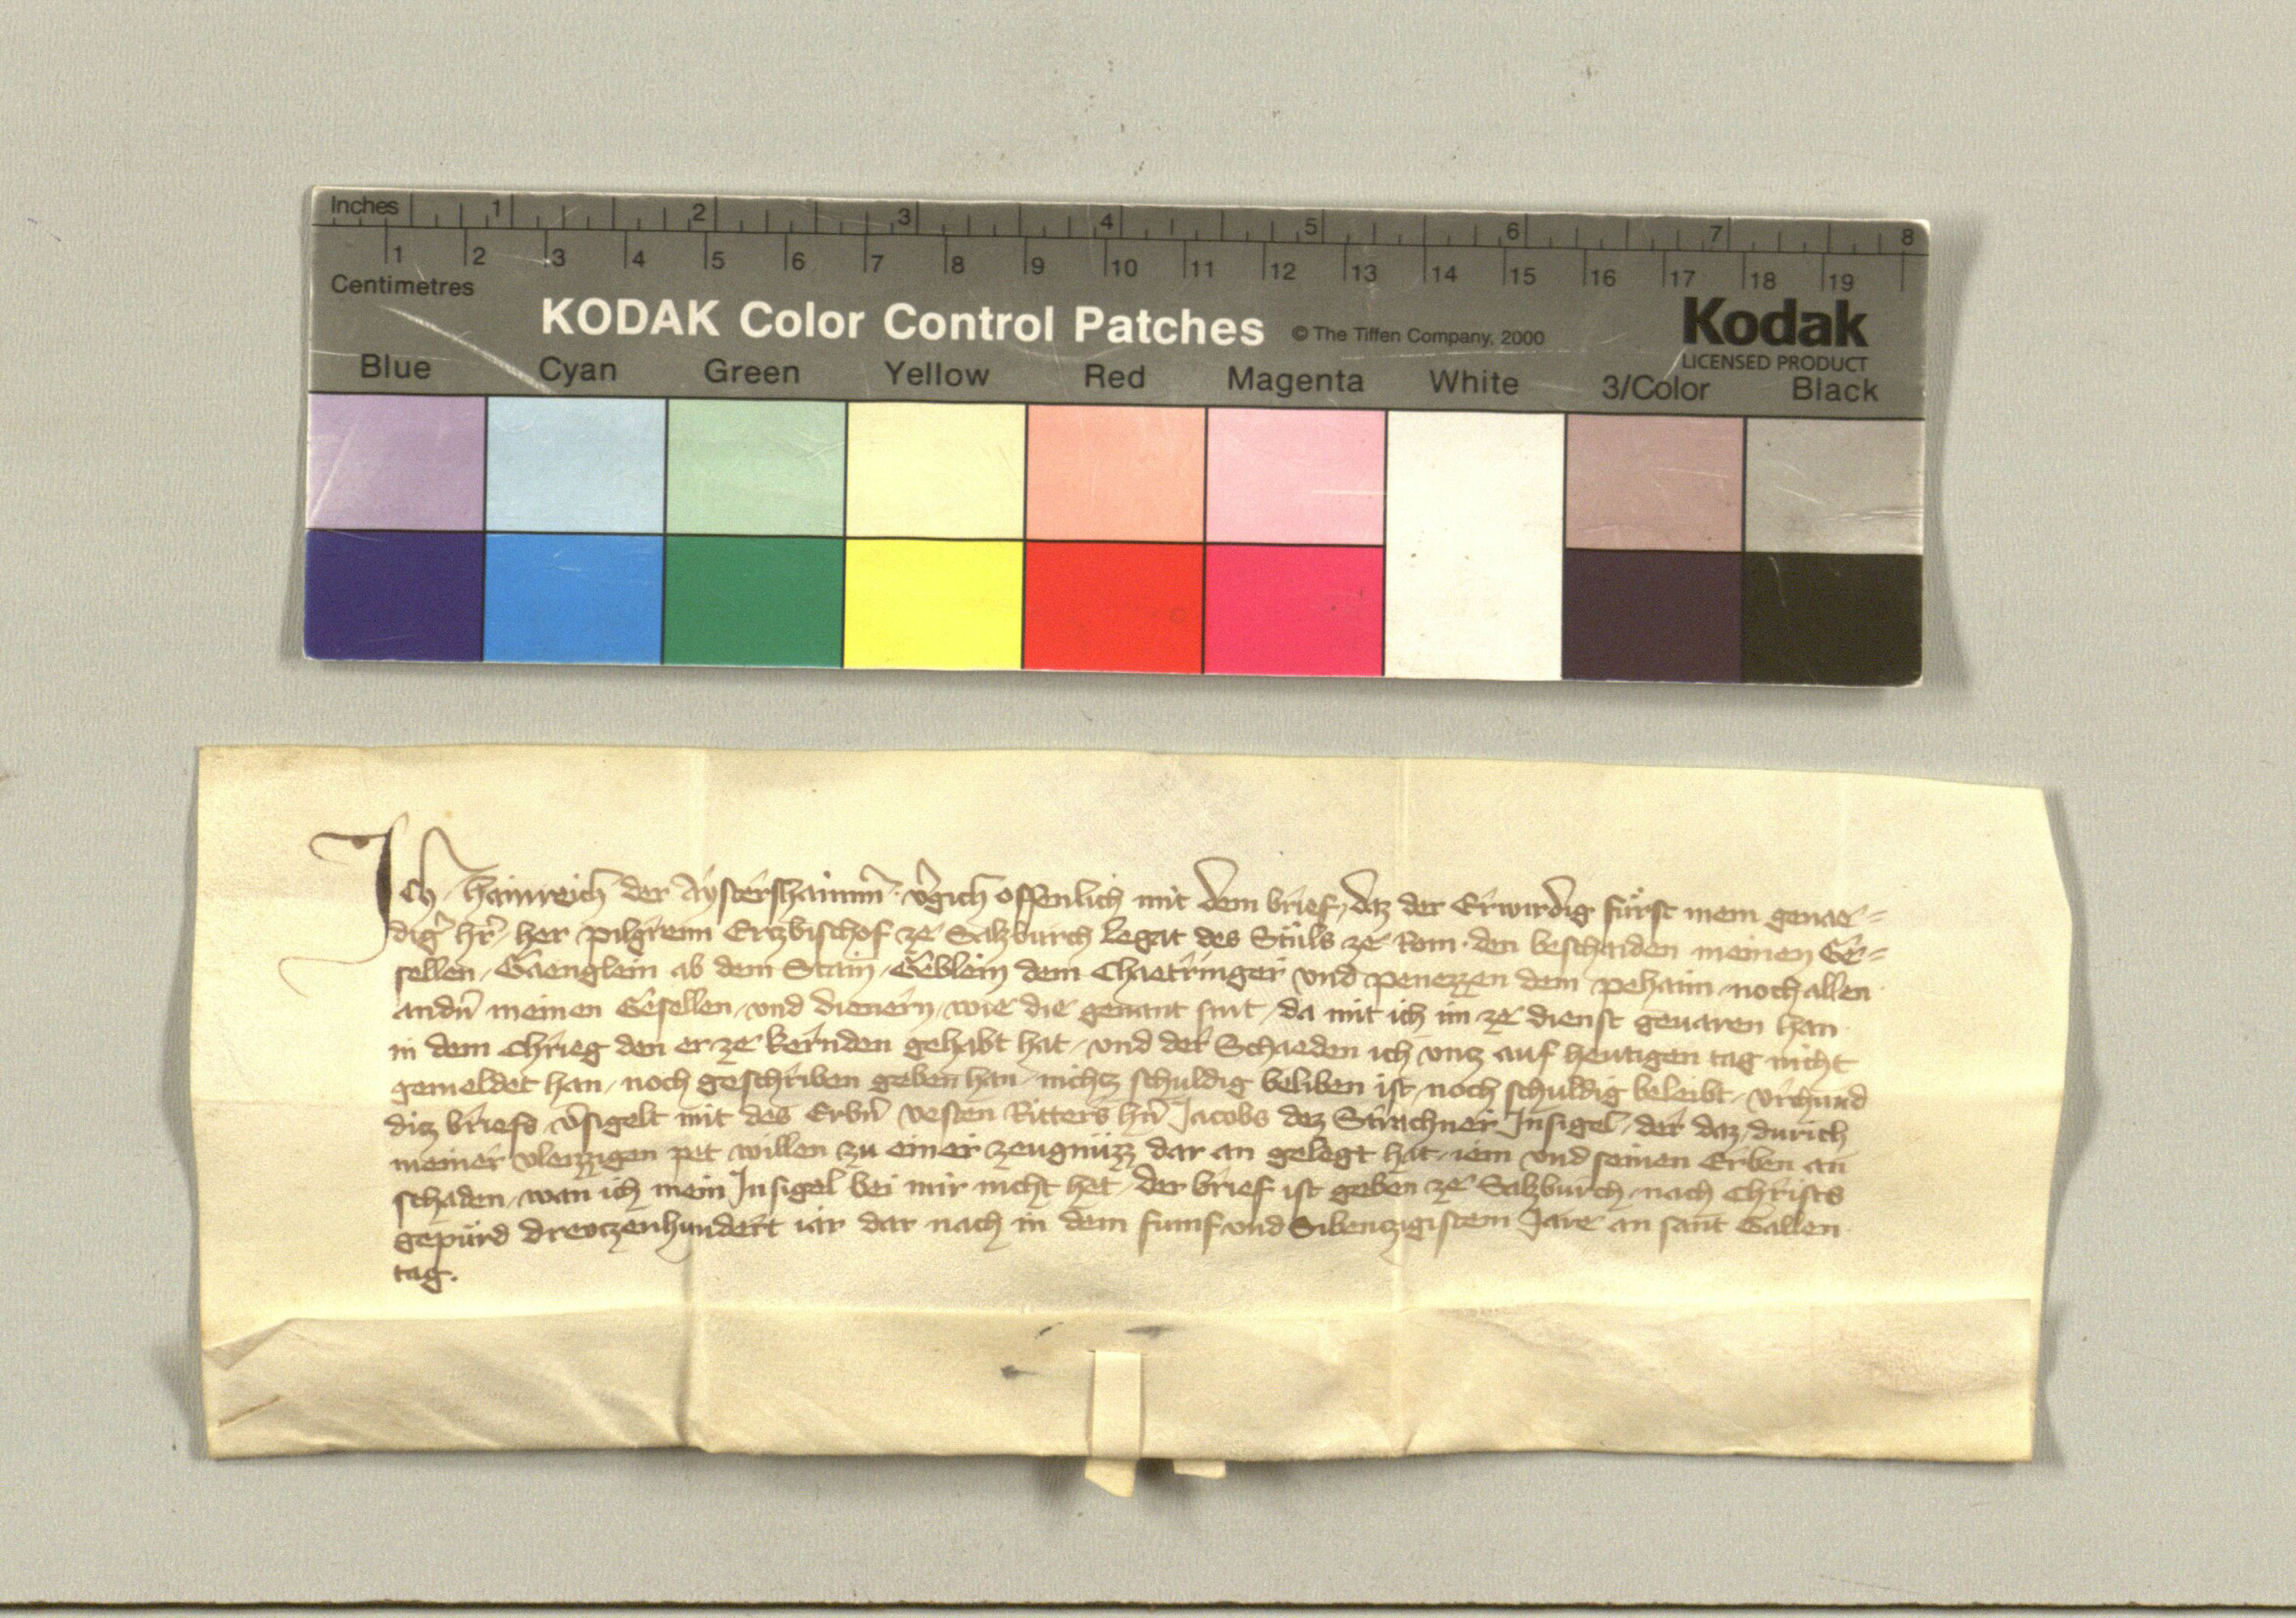 Inches 1 2 3 4 5 6 7 8
1 2 3 4 5 6 7 8 9 10 11 12 13 14 15 16 17 18 19
Centimetres
KODAK Color Control Patches © The Tiffen Company, 2000 Kodak
LICENSED PRODUCT
Blue Cyan Green Yellow Red Magenta White 3/Color Black
Ich hainreich der Aystershaimm̄ v̄gich offenlich mit dem brief, daz der Erwirdig fürst mein genae=
diḡ hr̄ her pilgreim Ertzbischof ze Salzburch Legat des Stuls ze Rom den beschaiden meinen Ge=
sellen Gaenglein ab dem Stain Geblein dem Chaetringer und penezzen dem pehaim noch allen
andn̄ meinen Gesellen und dienern wie die genant sint da mit ich im ze dienst geuaren han
in dem Chrieg den er ze kernden gehabt hat und der Schaeden ich vntz auf heutigen tag nicht
gemeldet han noch geschriben geben han nichtz schuldig beliben ist noch schuldig beleibt vrchund
ditz briefs v̄sigelt mit des Erbn̄ vesten Ritters hn̄ Jacobs dez Strachner Insigel der daz durich
meiner vleizzigen pet willen zu einer zeugnüzz dar an gelegt hat iem und seinen Erben an
schaden wan ich mein Insigel bei mir nicht het der brief ist geben ze Salzburch nach Christs
gepurd dreutzenhundert iar dar nach in dem fumf und Sibentzigistem Jare an sant Gallen
tag.